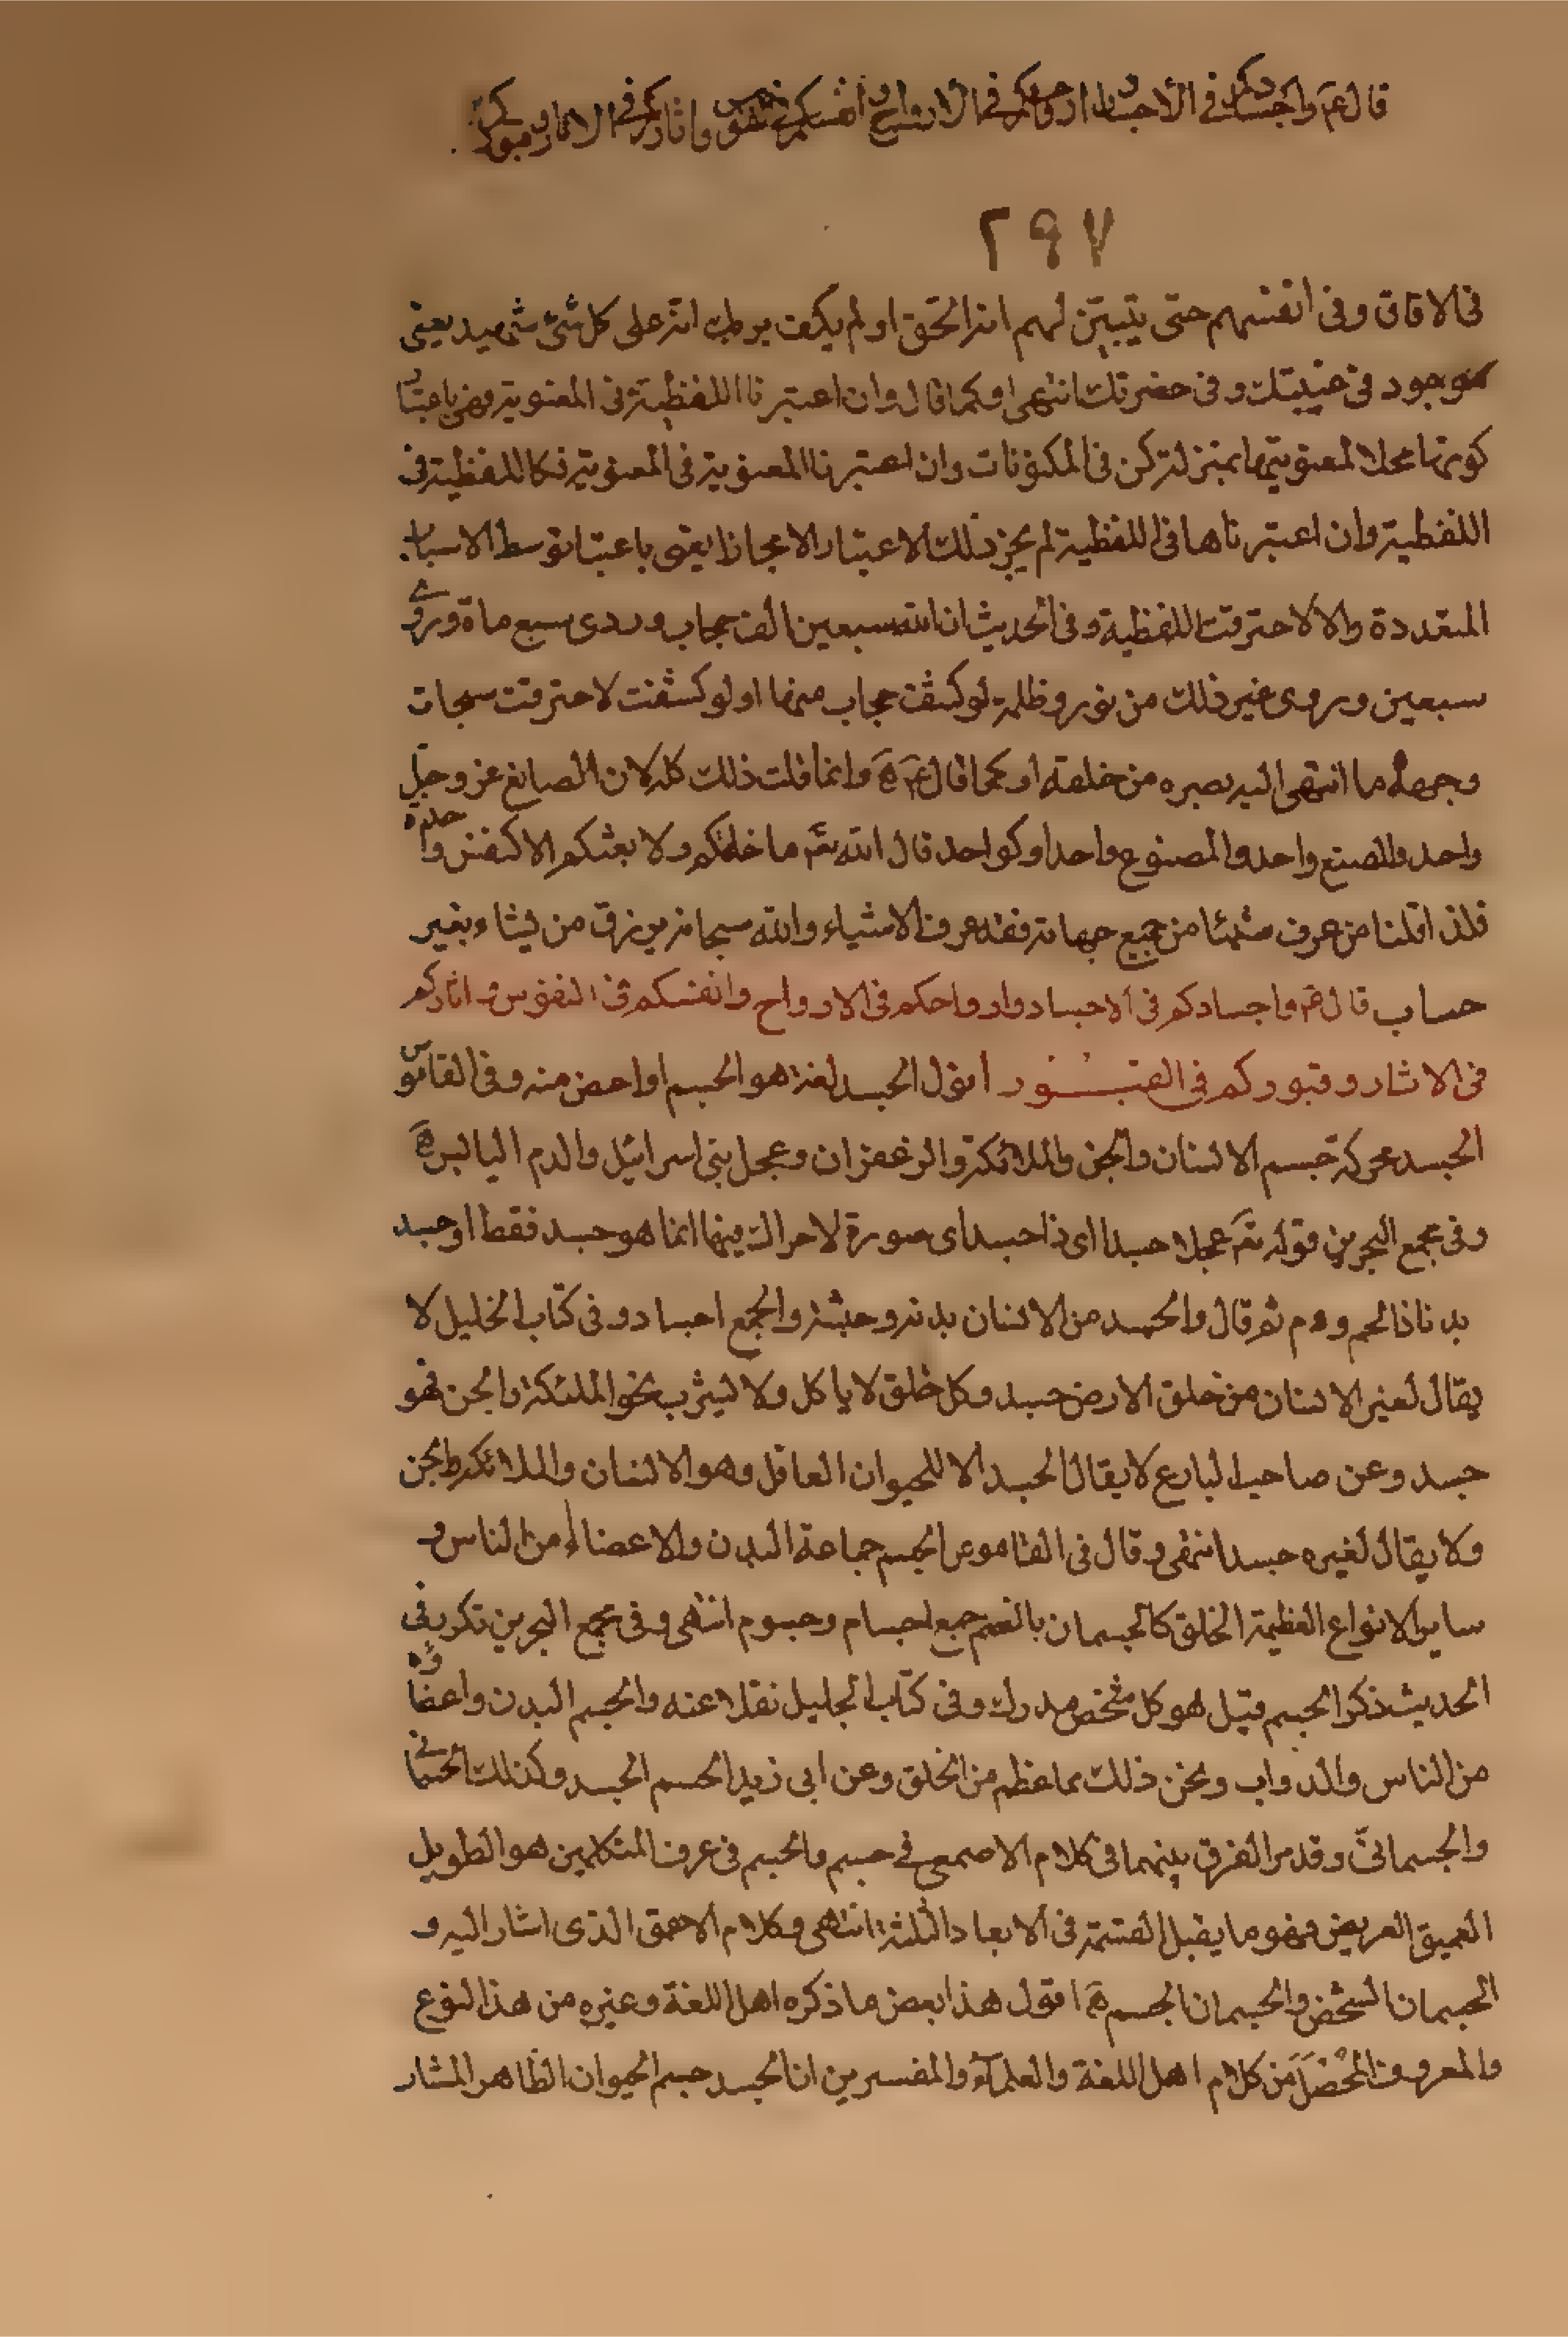 قال ع واجسادكم في الاجساد وارواحكم في الارواح وانفسكم في النفوس واثاركم في الاثار وقبوركم
٢٩٧
في الافاق وفي انفسهم حتى يتبيّن لهم انه الحق اولم يكف بربك انه على كل شئ شهيد يعني
موجود في غيبتك وفي حضرتك انتهى اوكما قال وان اعتبرنا اللفظية في المعنوية فهي باعتبار
كونها محلا لمعنويتها بمنزلة كن في المكونات وان اعتبرنا المعنوية في المعنوية فكاللفظية في
اللفظية وان اعتبرناها في اللفظية لم يجز ذلك الاعتبار الا مجازا يعني باعتبار توسط الاسباب
المتعددة والا لاحترقت اللفظية وفي الحديث ان لله سبعين الف حجاب وروى سبع ماة وروي
سبعين وروى غير ذلك من نور وظلمة لو كشف حجاب منها او لو كشفت لاحترقت سبحات
وجهه ما انتهى اليه بصره من خلقه او كما قال ع ه وانما قلت ذلك كله لان الصانع عز وجل
واحد والصنع واحد والمصنوع واحد او كواحد قال الله تع ما خلقكم ولا بعثكم الا كنفس واحدة
فلذا قلنا من عرف شيئا من جميع جهاته فقد عرف الاشياء والله سبحانه يرزق من يشاء بغير
حساب قال ع واجسادكم في الاجساد وارواحكم في الارواح وانفسكم في النفوس واثاركم
في الاثار وقبوركم في القبـــور اقول الجسد لغة هو الجسم او اخص منه وفي القاموس
الجسد محركة جسم الانسان والجن والملائكة والزعفران وعجل بني اسرائيل والدم اليابس ه
وفي مجمع البحرين قوله تع عجلا جسدا اي ذا جسد اي صورة لا حراك فيها انما هو جسد فقط او جسد
بدنا ذا لحم ودم ثم قال والجسد من الانسان بدنه وجثته والجمع اجساد وفي كتاب الخليل لا
يقال لغير الانسان من خلق الارض جسد وكل خلق لا ياكل ولا يشرب نحو الملئكة والجن فهو
جسد وعن صاحب البارع لا يقال الجسد الا للحيوان العاقل وهو الانسان والملائكة والجن
ولا يقال لغيره جسد انتهى وقال في القاموس الجسم جماعة البدن والاعضاء من الناس و
ساير الانواع العظيمة الخلق كالجسمان بالضم جمع اجسام وجسوم انتهى وفي مجمع البحرين تكرر في
الحديث ذكر الجسم قيل هو كل شخص مدرك وفي كتاب الجليل نقلا عنه والجسم البدن واعضاؤه
من الناس والدواب ونحو ذلك مما عظم من الخلق وعن ابي زيد الجسم الجسد وكذلك الجسمان
والجسماني وقد مر الفرق بينهما في كلام الاصمعي في جسم والجسم في عرف المتكلمين هو الطويل
العميق العريض فهو ما يقبل القسمة في الابعاد الثلثة انتهى وكلام الاصمعي الذي اشار اليه و
الجسمان الشخص والجسمان الجسم ه اقول هذا بعض ما ذكره اهل اللغة وغيره من هذا النوع
والمعروف المحصل من كلام اهل اللغة والعلماء والمفسرين ان الجسد جسم الحيوان الظاهر المشار